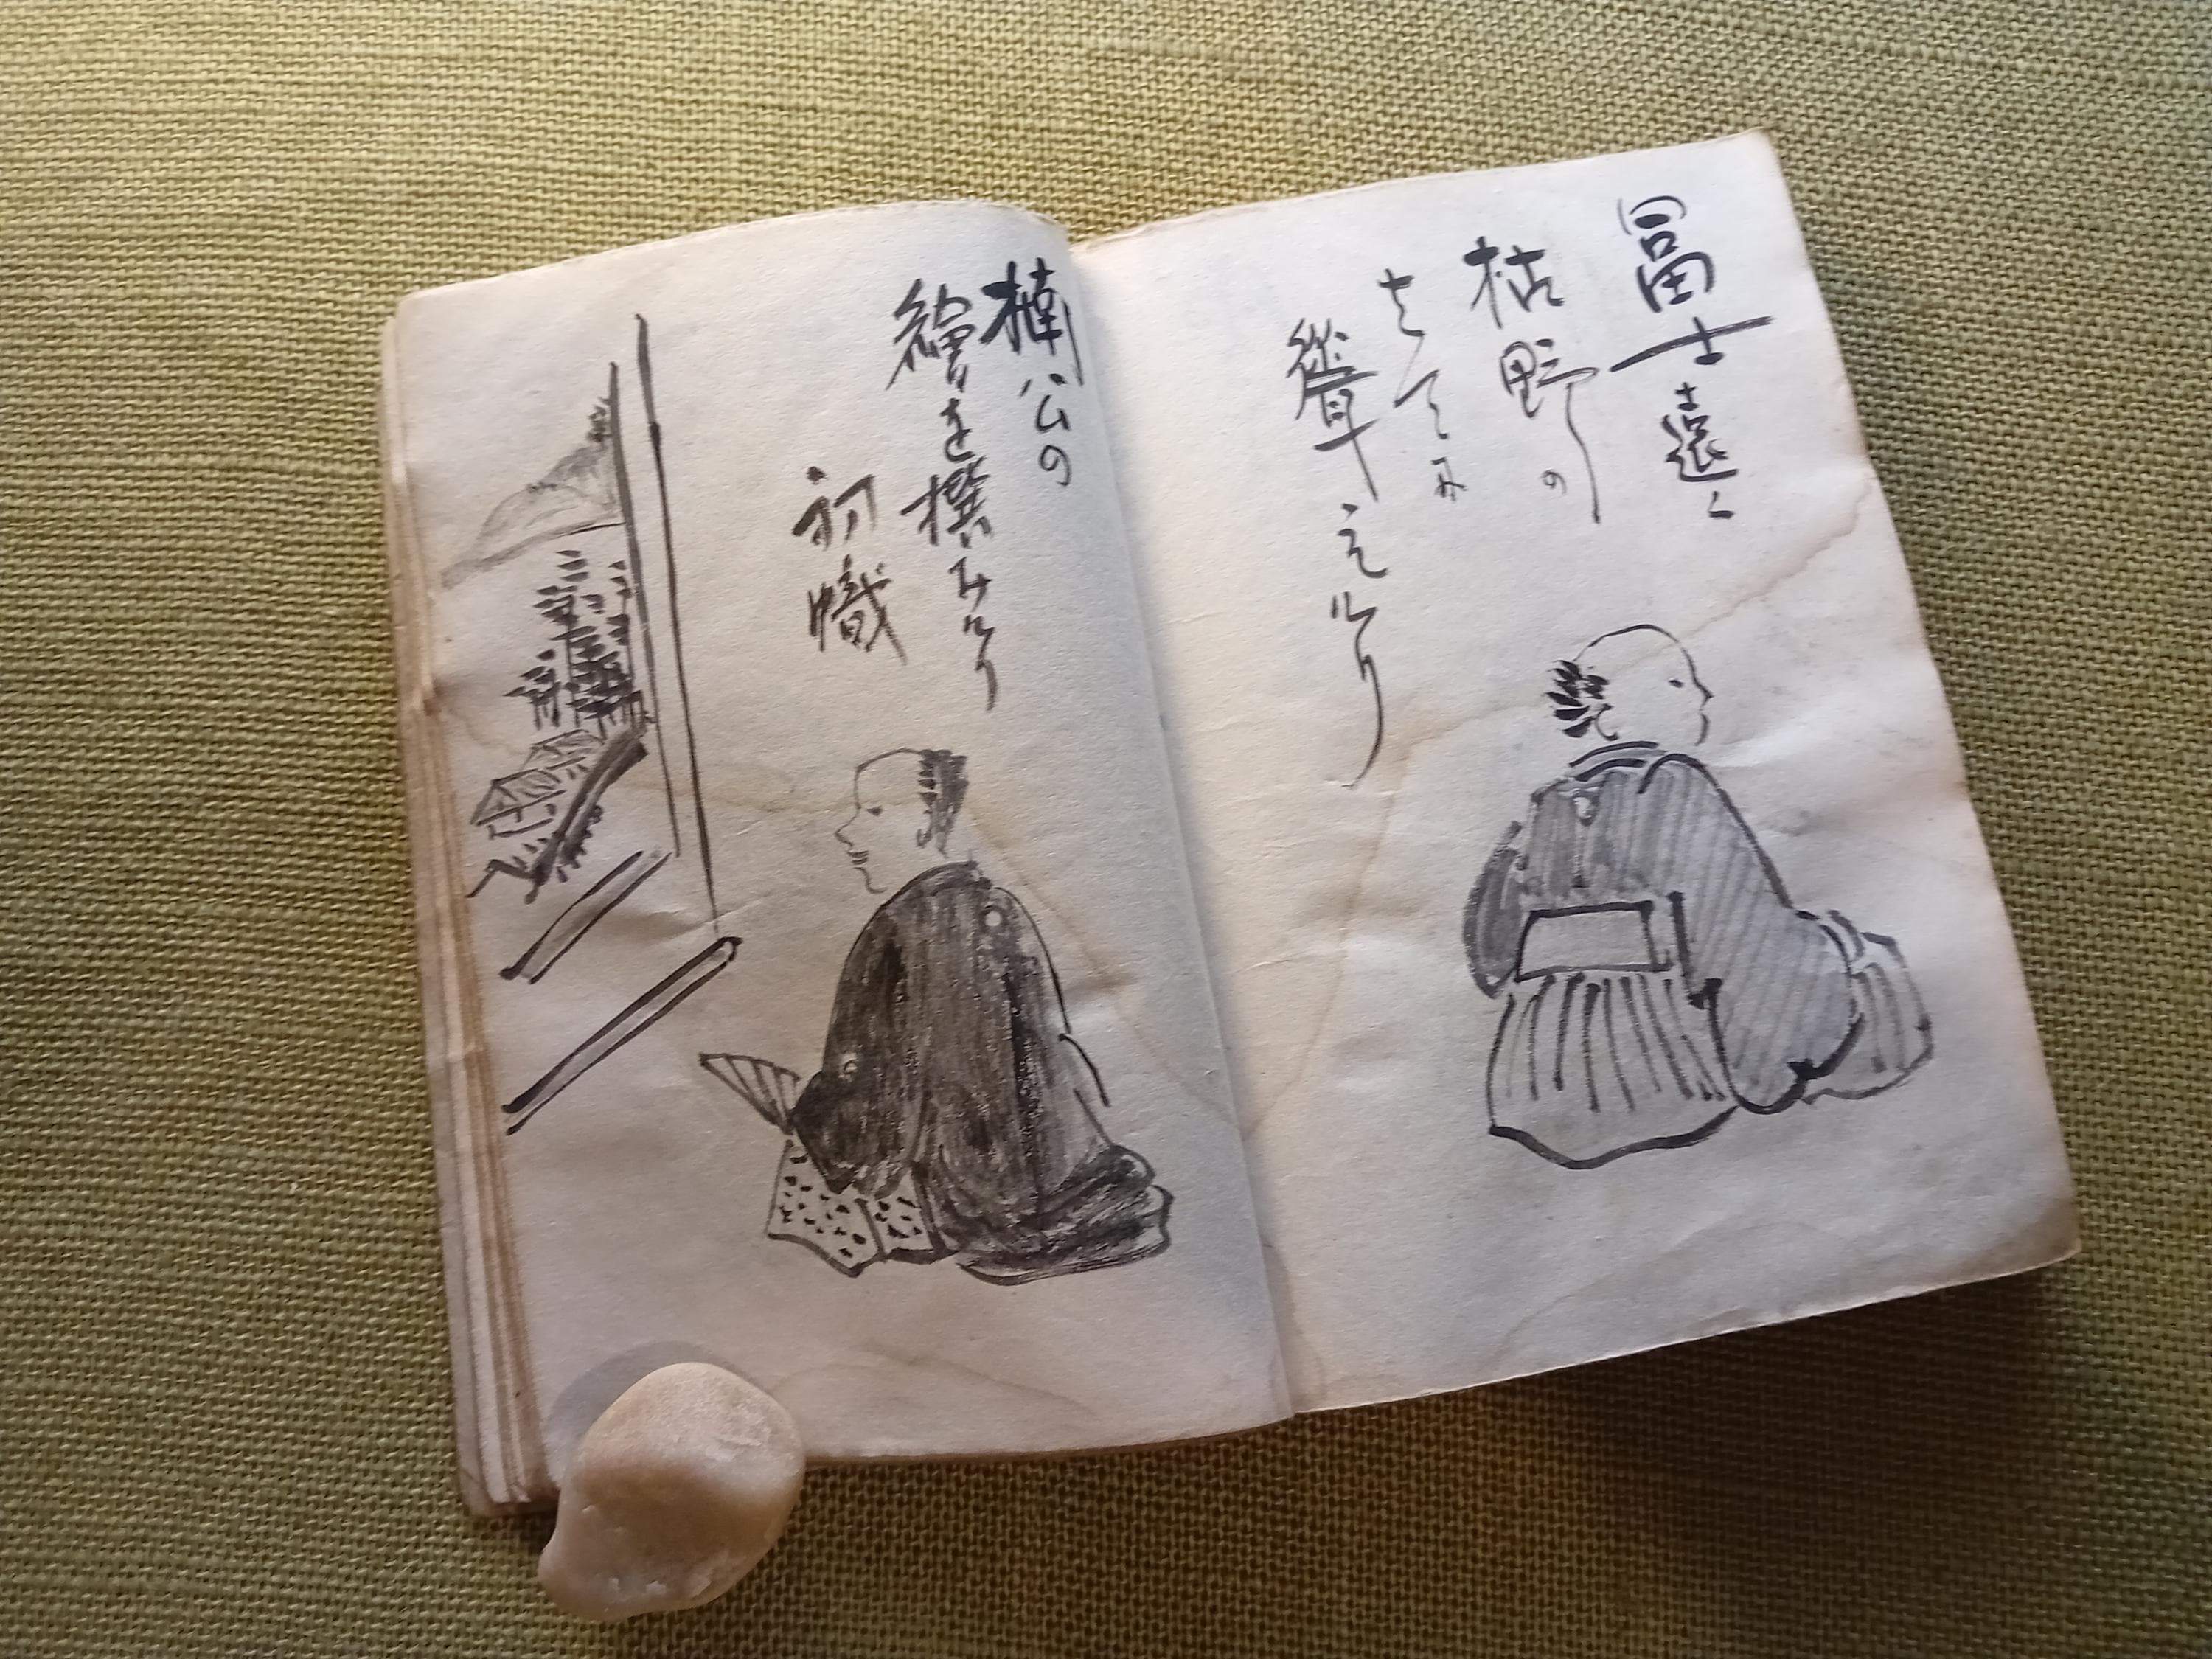 冨士遠く
枯野の
はてに
聳えけり
楠公の
繪を撰みけり
初幟